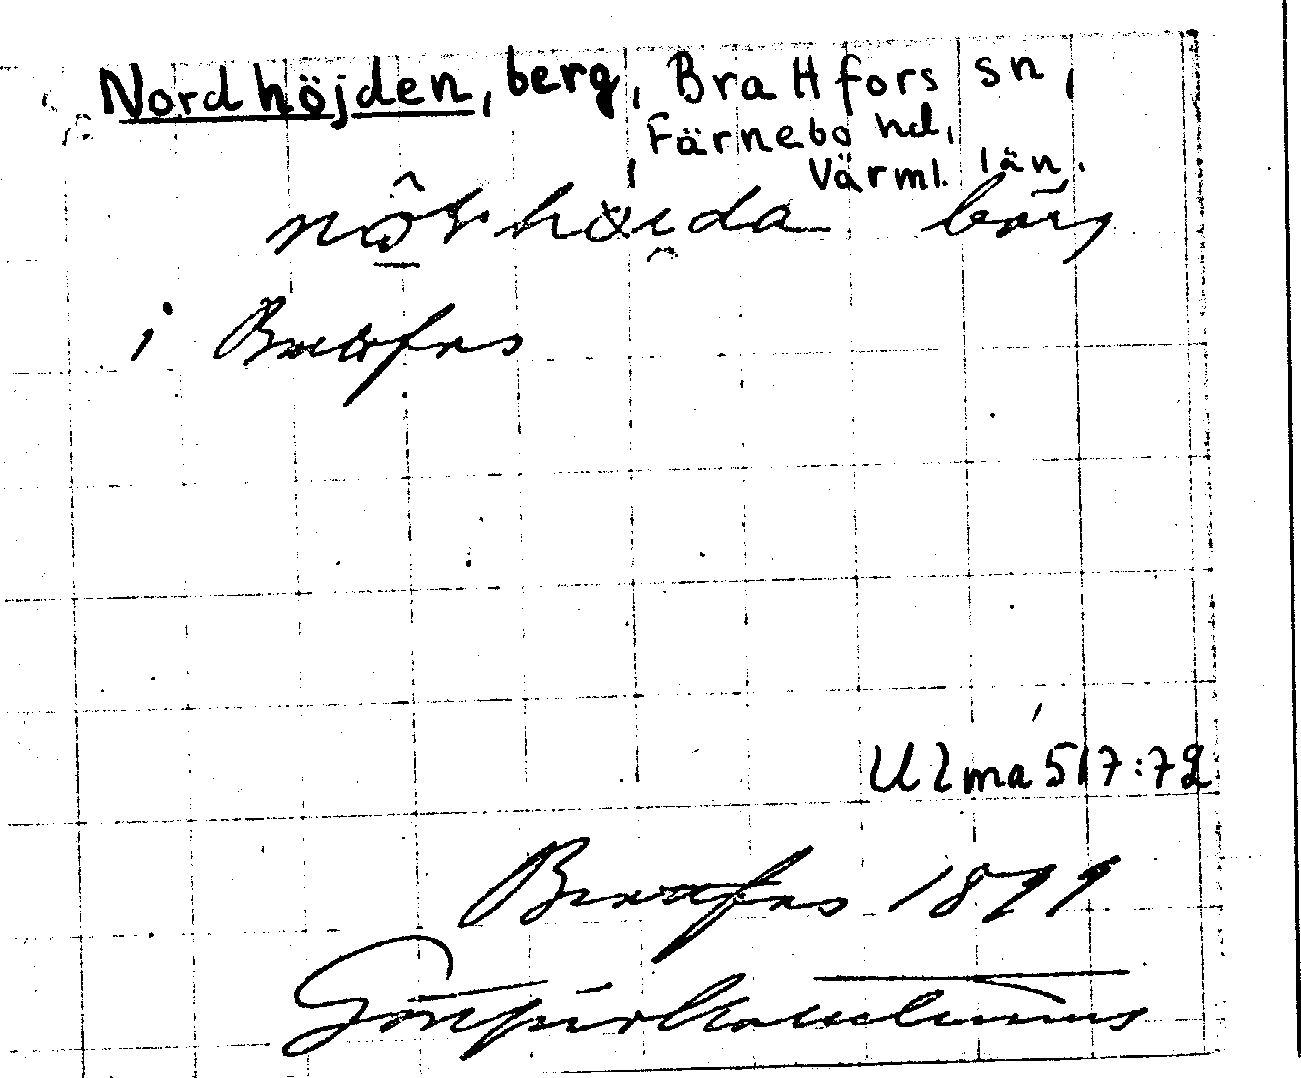 Nordhöjden, berg, Brattfors sn,
Färnebo hd,
Värml. län.
bärj
i Brattfors
Ulma 517:72
Brattfors 1899